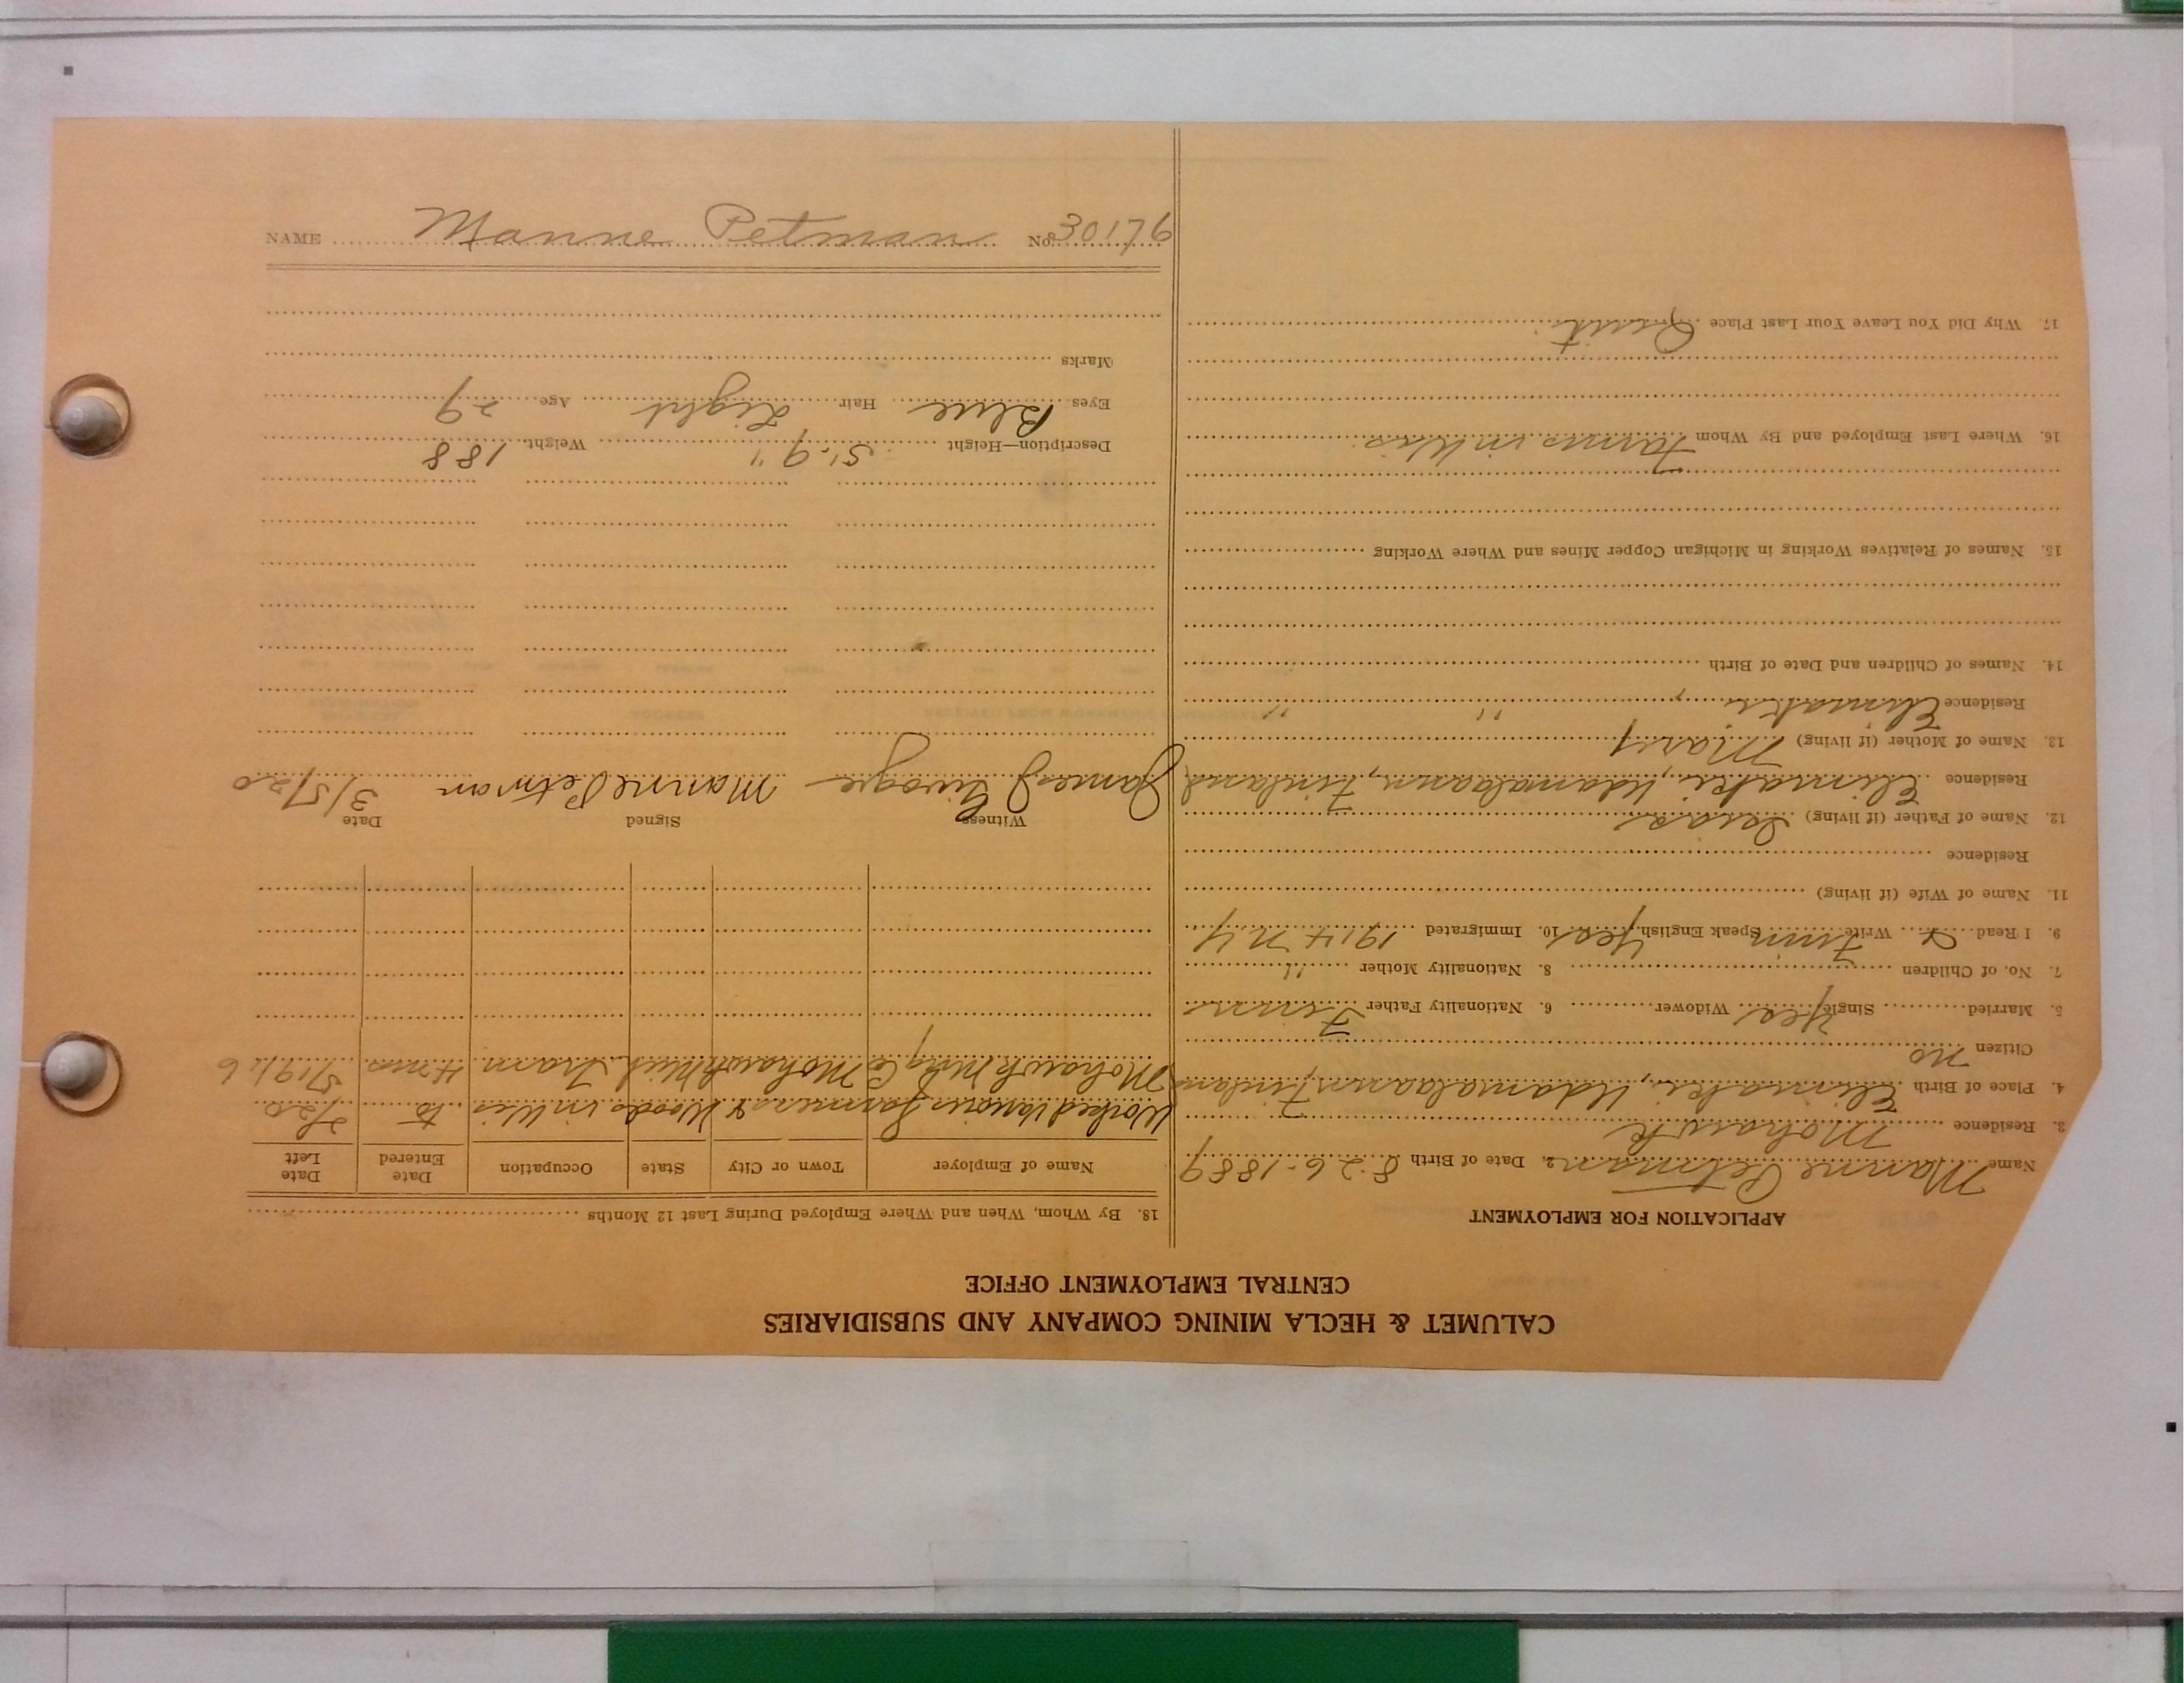 CALUMET & HECLA MINING COMPANY AND SUBSIDIARIES
CENTRAL EMPLOYMENT OFFICE
APPLICATION FOR EMPLOYMENT
Name Manne Petman 2. Date of Birth 8-26-1889
3. Residence Mohawk
4. Place of Birth Elimaki, Udamalaann, Finland
Citizen no
5. Married Single yes Widower 6. Nationality Father Finn
7. No. of Children 8. Nationality Mother "
9. I Read Write Finn Speak English yes 10. Immigrated 1914 N.Y
11. Name of Wife (if living)
Residence
12. Name of Father (if living)
Residence Elimaki, Udamalaann, Finland
13. Name of Mother (if living) Mary
Residence Elimaki, " "
14. Names of Children and Date of Birth
15. Names of Relatives Working in Michigan Copper Mines and Where Working
16. Where Last Employed and By Whom Farms in Wis.
17. Why Did You Leave Your Last Place Quit
18. By Whom, When and Where Employed During Last 12 Months
Name of Employer Town or City State Occupation Date Entered Date Left
Worked Various Farmers & Woods in Wis to 2/20
Mohawk Mng Co Mohawk Mich Tram 4 mos 5/1916
Witness Signed Date
James Manne Petman 3/5/20
Description—Height 5'.9" Weight 188
Eyes Blue Hair Light Age 29
Marks
NAME Manne Petman No. 30176